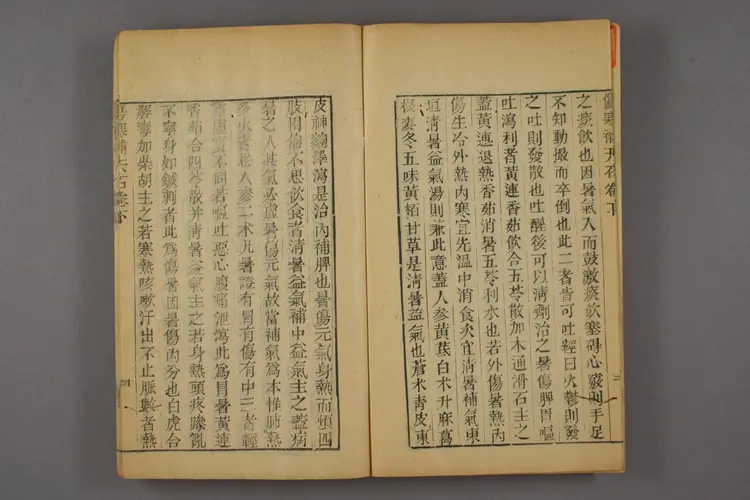 傷寒補天石卷下
之痰飲也因暑氣入而鼓激痰飲塞碍心竅則手足
不知動撮而卒倒也此二者皆可吐經曰火鬱則發
之吐則發散也吐醒後可以清劑治之暑傷脾胃嘔
吐瀉利者黃連香茹飲合五苓散加木通滑石主之
蓋黃連退熱香茹消暑五苓利水也若外傷暑熱內
傷生冷外熱內寒宜先溫中消食次宜清暑補氣東
垣清暑益氣湯則兼此意蓋人參黃茋白术升麻葛
根麥冬五味黃栢甘草是清暑益氣也蒼术青皮東
皮神麯澤瀉是治內補脾也暑傷元氣身熱而煩四
肢困倦不思飲食者清暑益氣補中益氣主之蓋病
暑之人其氣必虛暑傷元氣故當補氣爲本惟肺熱
多火者忌人參二术凡暑證有冒有傷有中三者輕
重虛實不同若嘔吐惡心腹痛泄瀉此爲冒暑黃連
香茹合四苓散并清暑益氣主之若身熱頭疼躁亂
不寧身如鍼刺者此爲傷暑因暑傷肉分也白虎合
解毒加柴胡主之若寒熱咳嗽汗出不止脈數者熱
傷寒補天石卷下
四